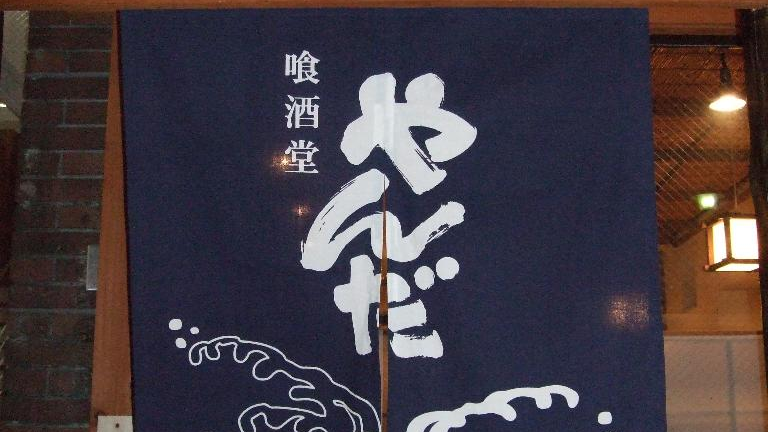 喰酒堂
やんだ